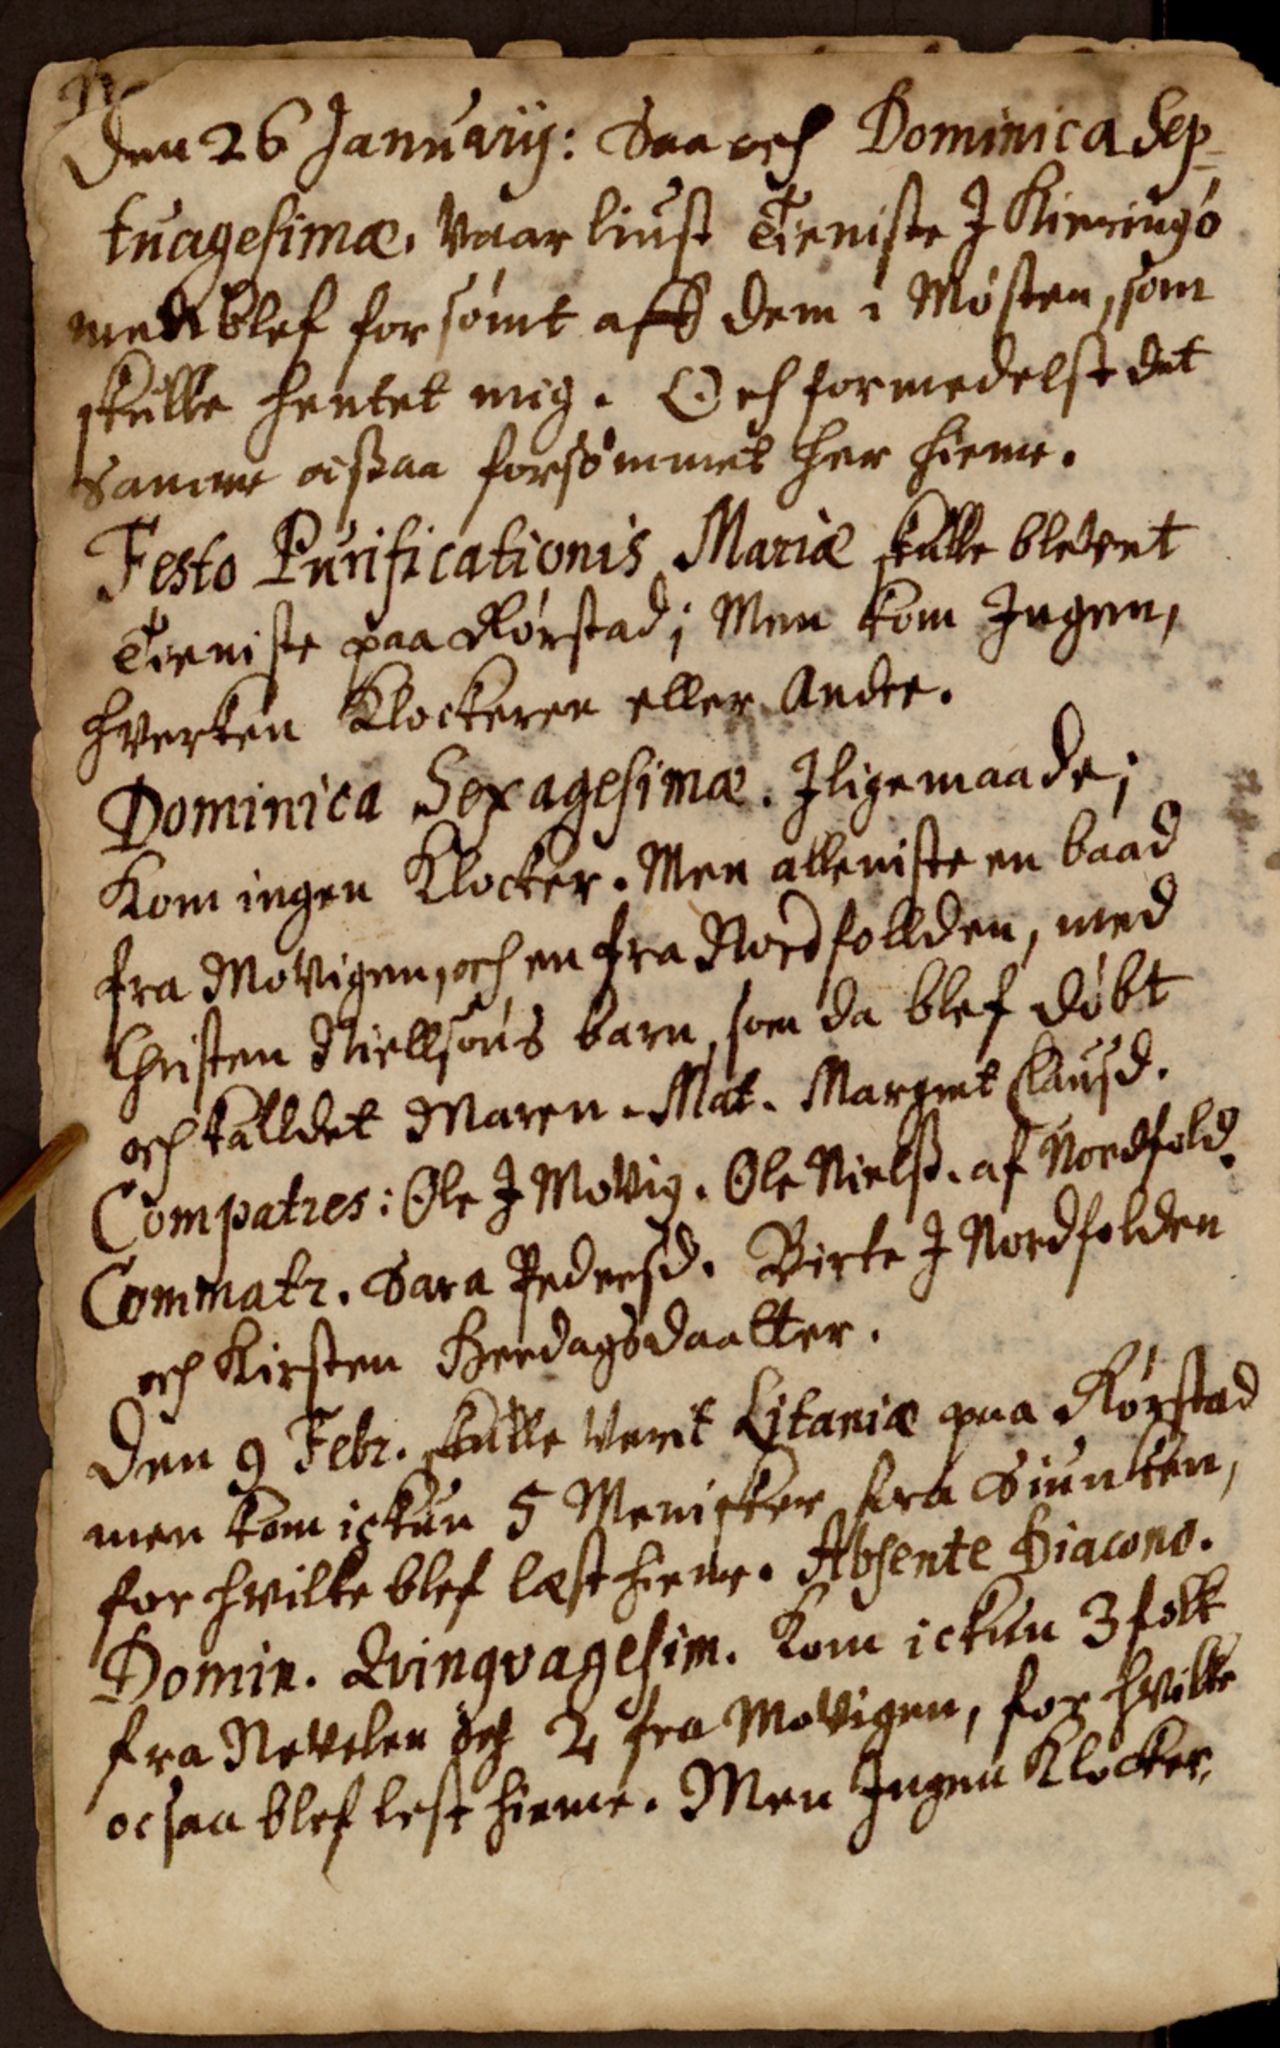 Den 26 Januarij: Saa och Dominica Sep-
tuagesimæ. Vaar liust Tieniste J Kieringö
men blef forsömt aff dem i Mösten, som
skulle hentet mig. Och formedelst det
Samme ocsaa forsömmet her hieme.
Festo Purificationis Mariæ skulle blevet
Tieniste paa Rörstad; Men kom Ingen,
hverken Klockeren eller Andre.
Dominica Sexagesimæ. Jligemaade;
Kom ingen Klocker. Men alleniste en baad
fra Movigen, och en fra Nordfollden, med
Christen Niellsöns barn, som da blef döbt
och kalldet Maren. Mat. Margret Clausd.
Compatres: Ole J Movig. Ole Nielss. af Nordfold.
Commatr. Sara Pedersd. Birte J Nordfolden
och Kirsten Heedagsdaatter.
Den 9 Febr. skulle Verit Litaniæ paa Rörstad
men kom ickun 5 Menisker fra Siunken,
for hvilke blef læst hieme. Absente Diacono.
Domin. Qvinqvagesim. Kom ickun 3 folk
fra Nevelen och 2 fra Movigen, for hvilke
ocsaa blef lest hieme. Men Ingen Klocker.